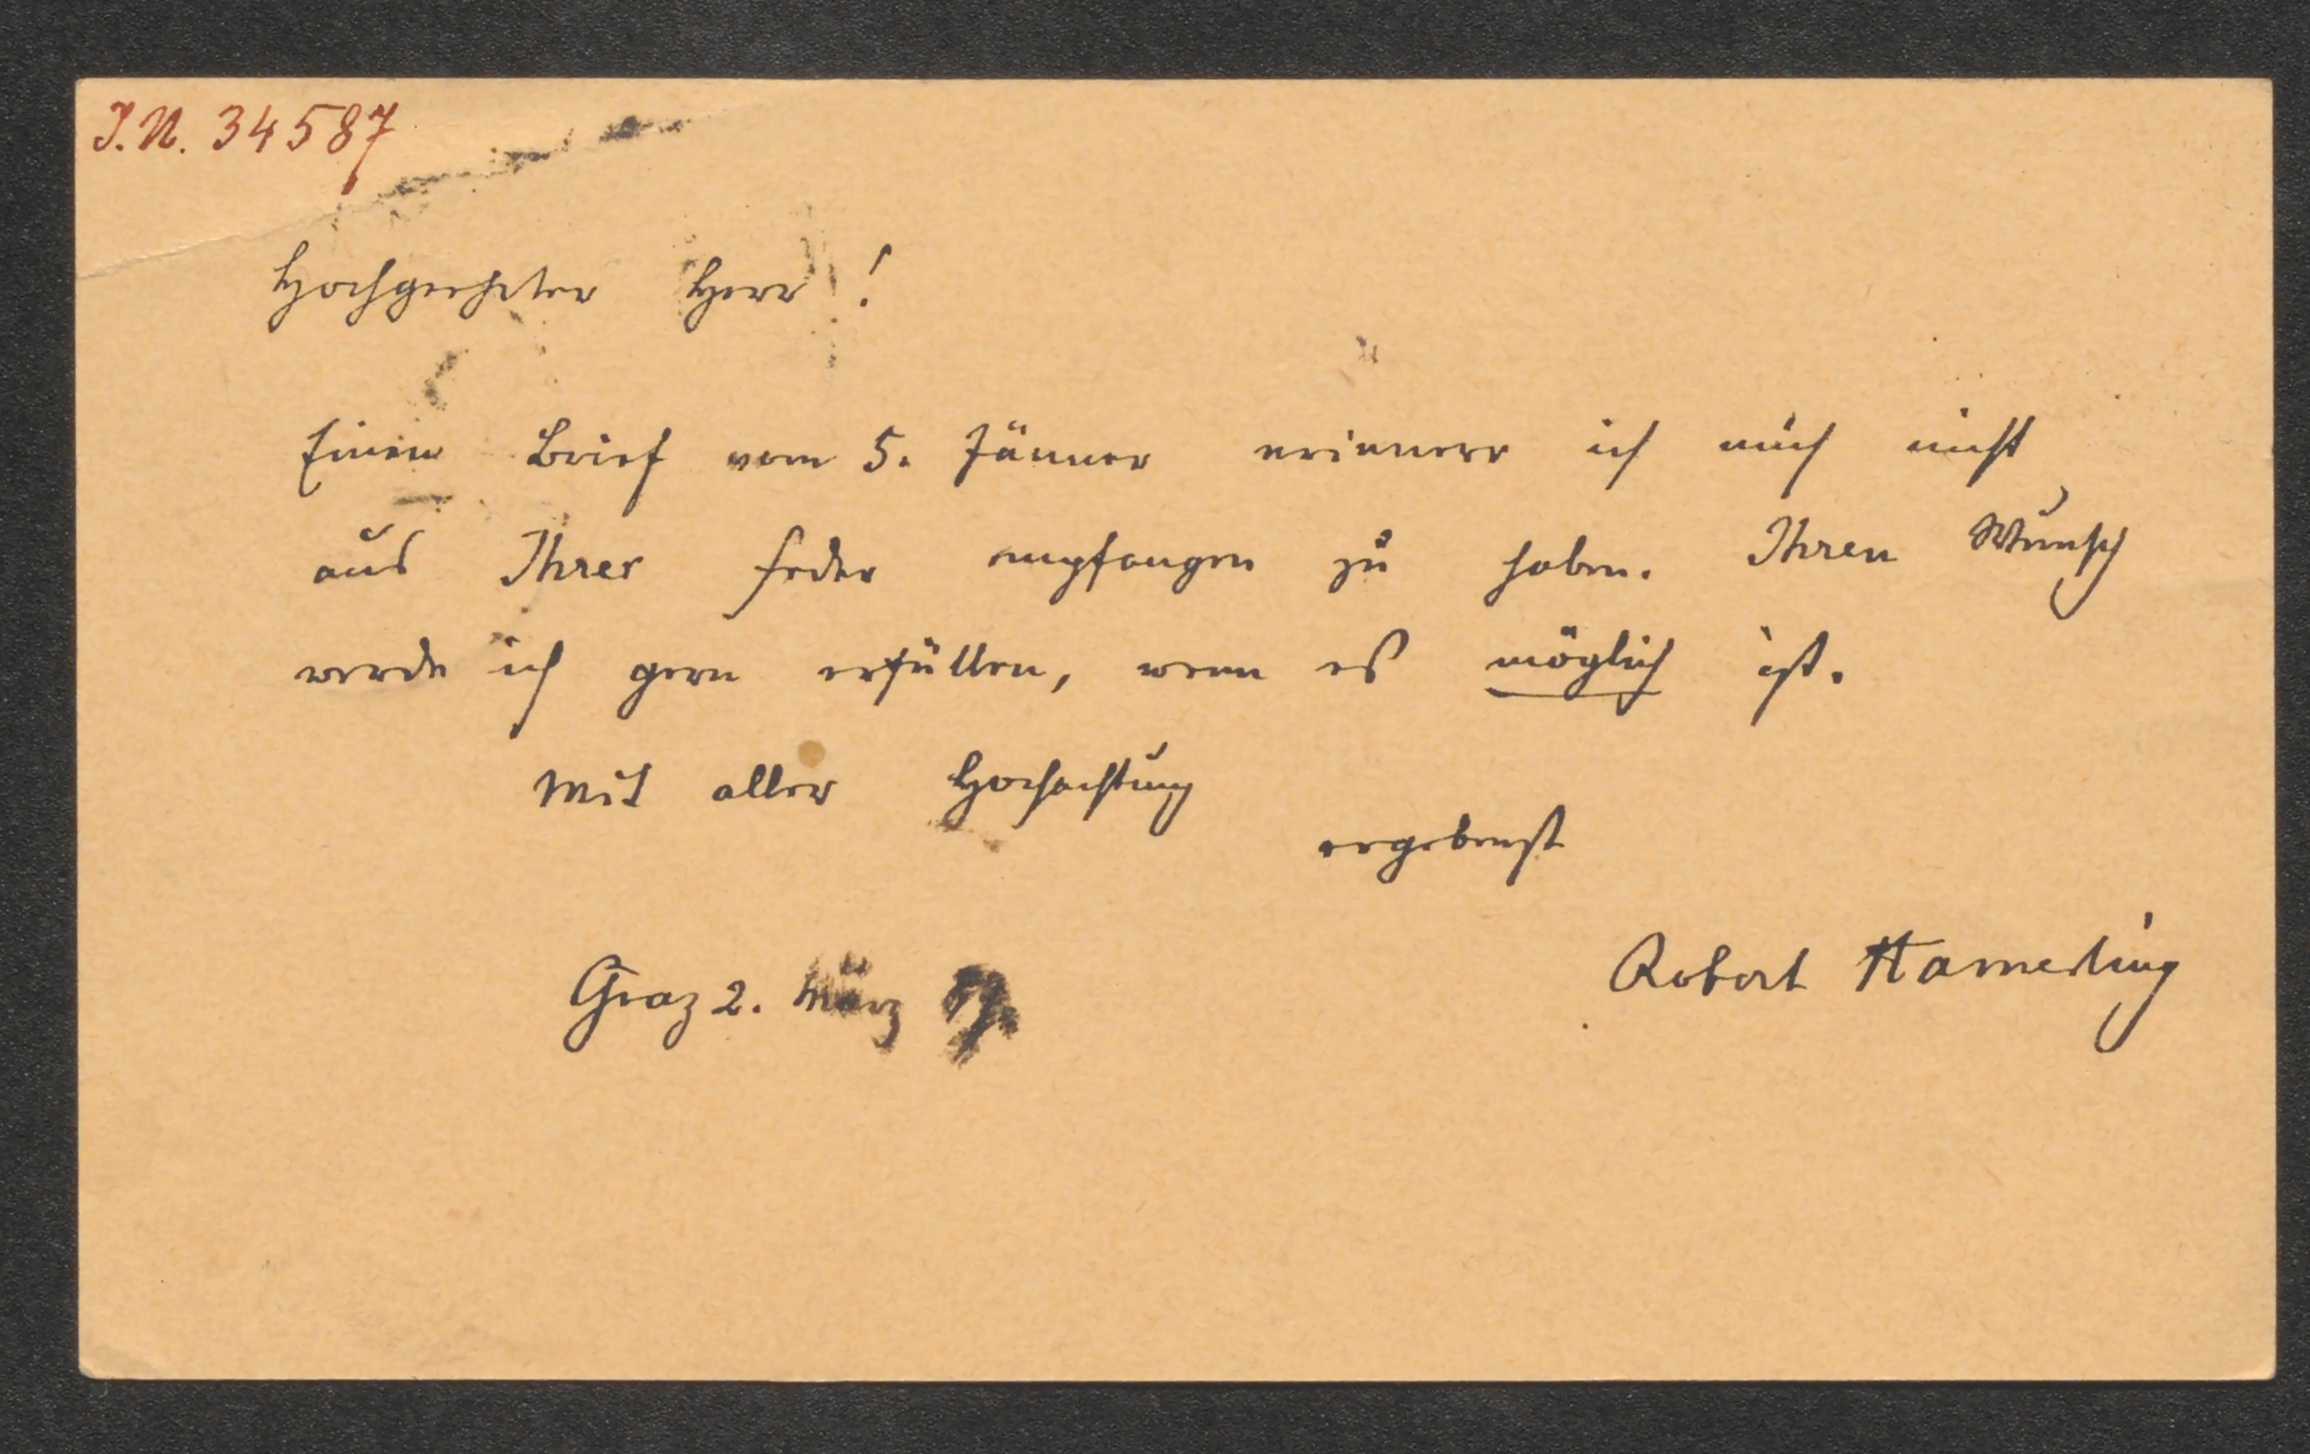 I.N. 34587
Hochgeehrter Herr!
Einen Brief vom 5. Jänner erinnere ich mich nicht
aus Ihrer Feder empfangen zu haben. Ihren Wunsch
werde ich gern erfüllen, wenn es möglich ist.
Mit aller Hochachtung
ergebenst
Robert Hamerling
Graz 2. März